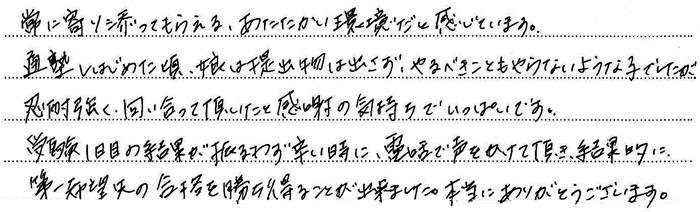 常に寄り添ってもらえる、あたたかい環境だと感じています。
通塾しはじめた頃、娘は提出物は出さず、やるべきこともやらないような子でしたが
忍耐強く、向い合って頂いたこと感謝の気持ちでいっぱいです。
受験1日目の結果が振るわず辛い時に、電話で声をかけて頂き、結果的に
第一希望校の合格を勝ち得ることが出来ました。本当にありがとうございます。